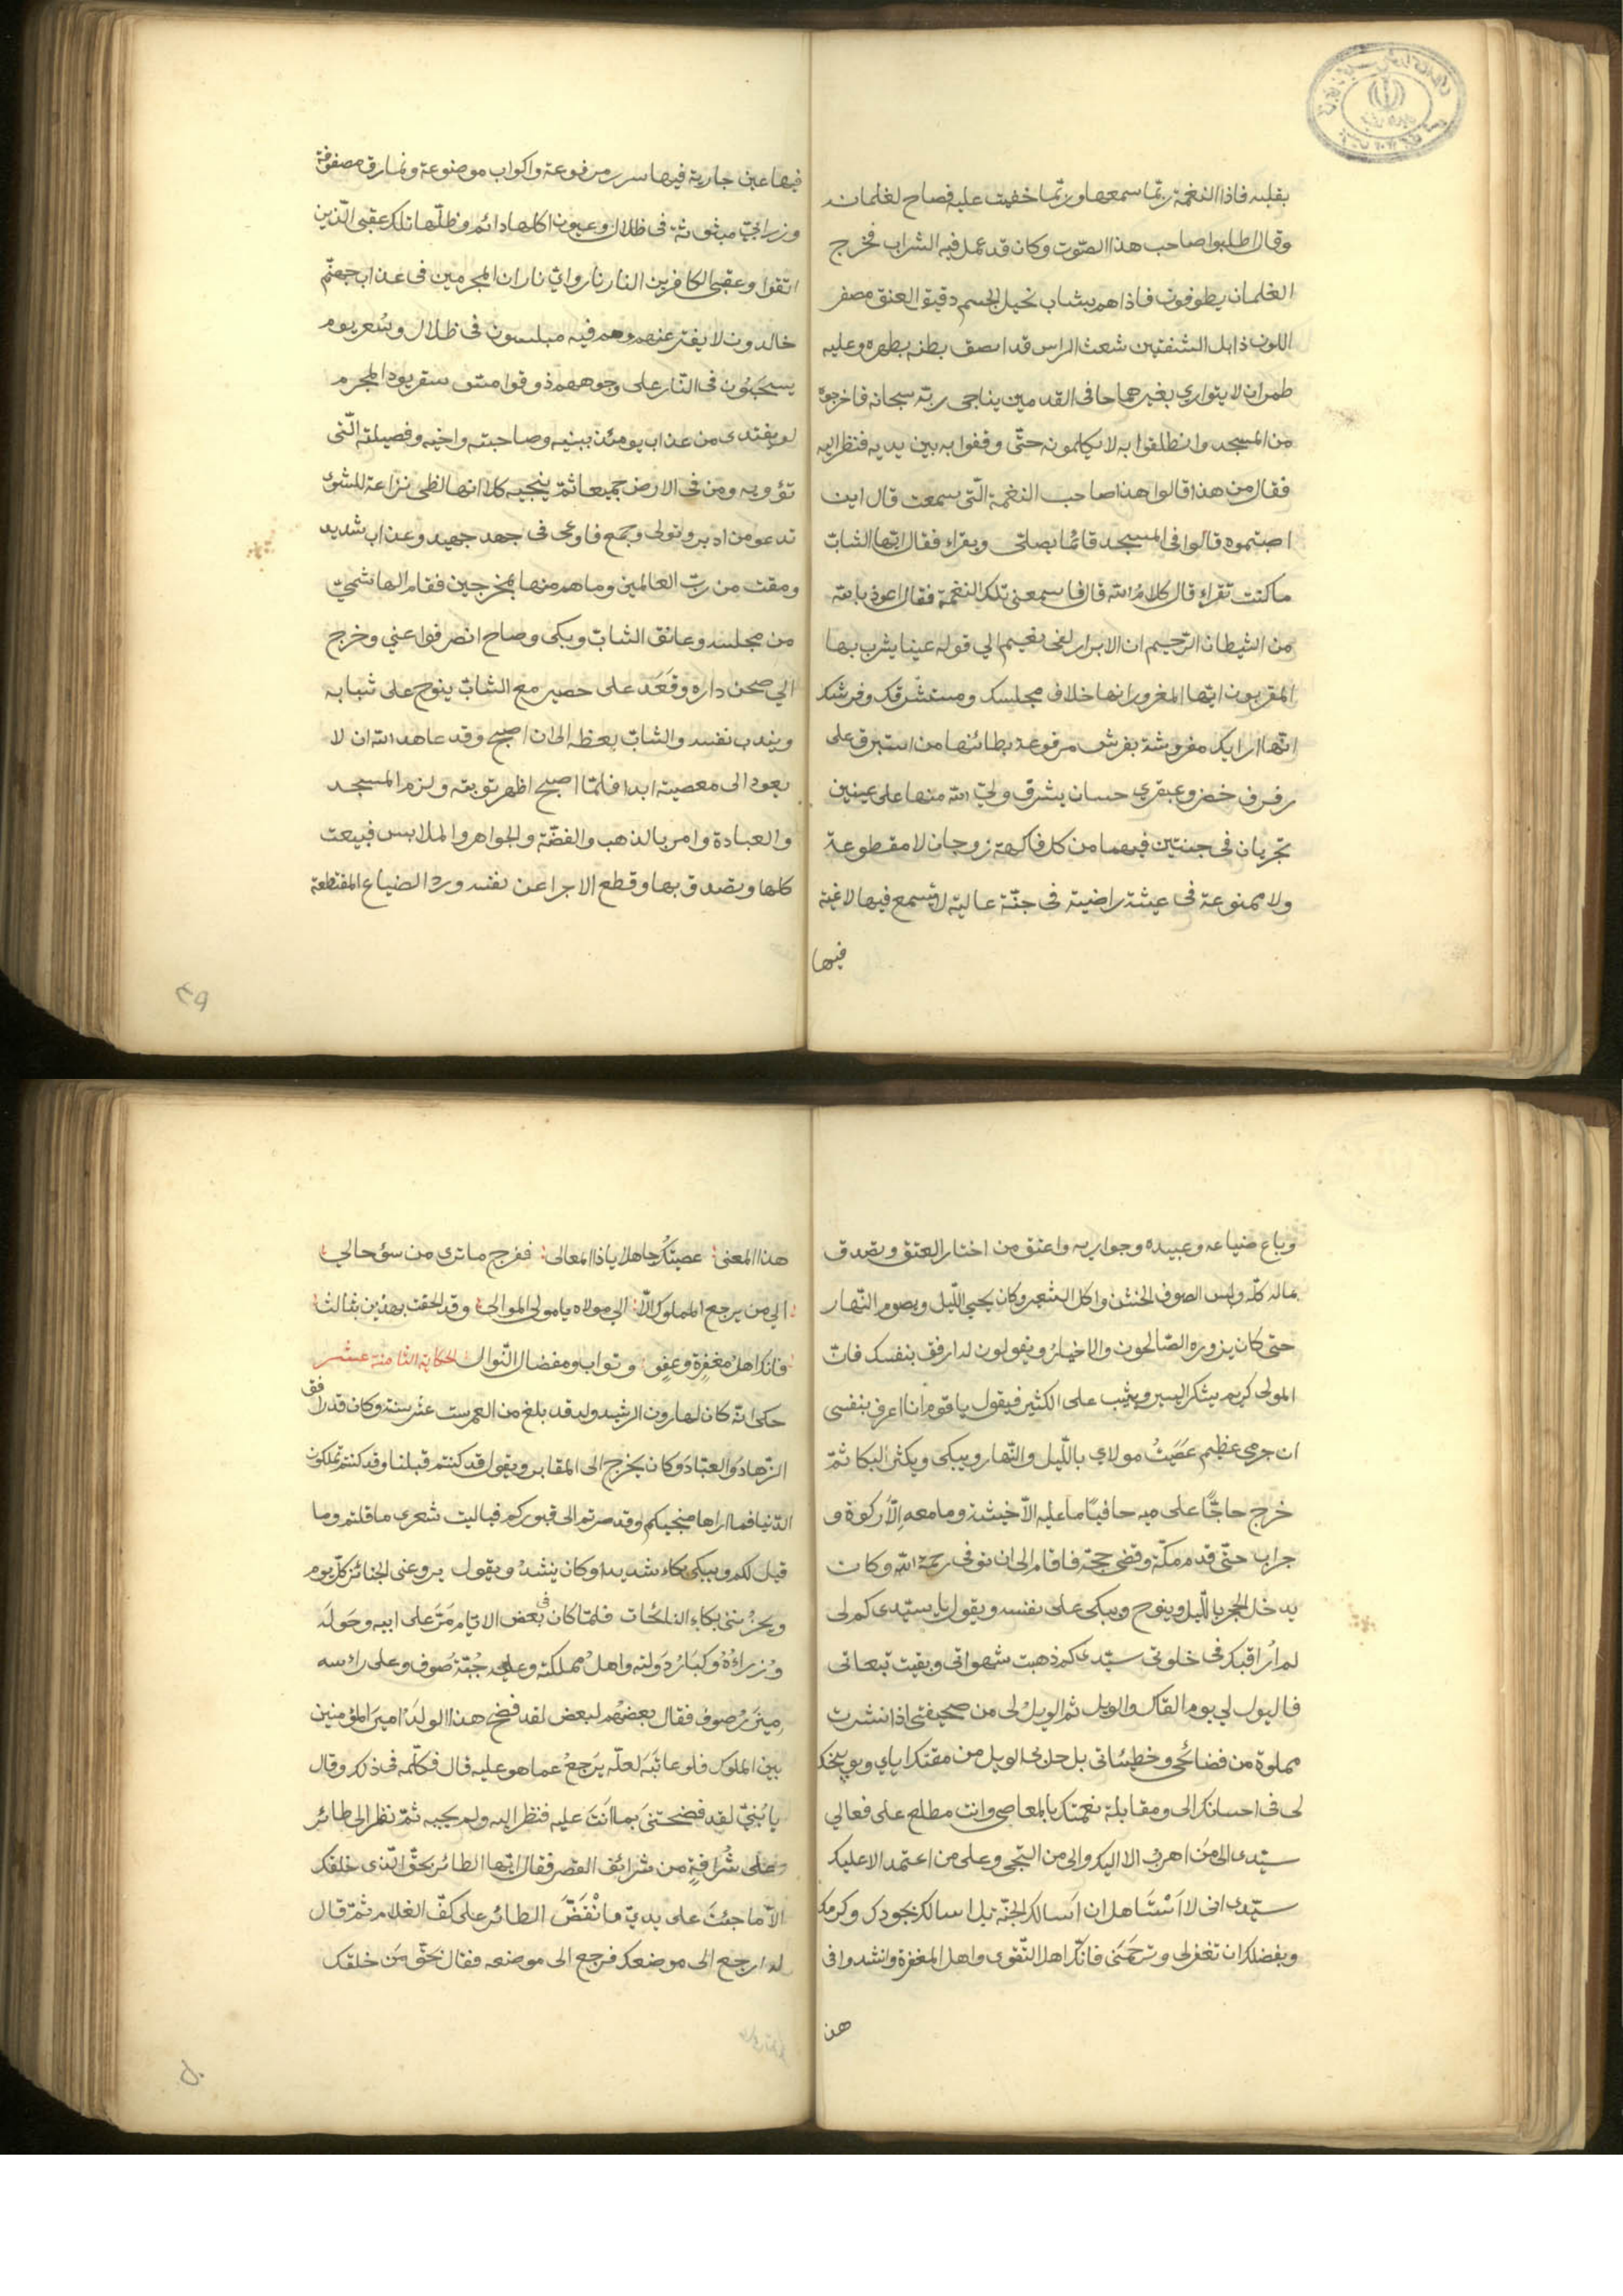 بقلبه فاذا النغمة ربّما سمعها وربّما خفيت عليه فصاح لغلمانه
وقال اطلبوا صاحب هذا الصّوت وكان قد عمل فيه الشراب فخرج
الغلمان يطوفون فاذا هم بشاب نحيل الجسم دقيق العنق مصفر
اللون ذابل الشفتين شعث الراس قد لصق بطنه بظهره وعليه
طمران لا يتواري بغيرهما حافى القدمين يناجى ربّه سبحانه فاخرجوه
من المسجد وانطلقوا به لا يكلمونه حتّى وقفوا به بين يديه فنظر اليه
فقال من هذا قالوا هذا صاحب النغمة الّتى سمعت قال اين
اصبتموه قالوا فى المسجد قائما يصلّى ويقراء فقال ايّها الشابّ
ما كنت تقراء قال كلام الله قال فاسمعنى تلك النغمة فقال اعوذ بالله
من الشيطان الرّجيم ان الابرار لفى نعيم الي قوله عينا يشرب بها
المقربون ايّها المغرور انها خلاف مجلسك ومستشرفك وفرشك
انّها ارايك مفروشة بفرش مرفوعة بطائنها من استبرق على
رفرف خضر وعبقري حسان يشرف وليّ الله منها على عينين
تجريان فى جنتين فيهما من كل فاكهة زوجان لا مقطوعة
ولا ممنوعة فى عيشة راضية فى جنّة عالية لا تسمع فيها لاغية
فيها
فيها عين جارية فيها سرر مرفوعة واكواب موضوعة ونمارق مصفوفة
وزرابيّ مبثوثة فى ظلال وعيون اكلها دائم وظلّها تلك عقبى الّذين
اتقوا وعقبى الكافرين النار نار وايّ نار ان المجرمين فى عذاب جهنّم
خالدون لا يفتر عنهم وهم فيه مبلسون فى ظلال وسُعر يوم
يسحبون فى النّار على وجوههم ذوقوا مسّ سقر يودّ المجرم
لو يفتدى من عذاب يومئذ ببنيه وصاحبته واخيه وفصيلته الّتى
تؤويه ومن فى الارض جميعا ثمّ ينجيه كلا انها لظى نزاعة للشوى
تدعو من ادبر وتولى وجمع فاوعى فى جهد جهيد وعذاب شديد
ومقت من ربّ العالمين وما هم منها بمخرجين فقام الهاشميّ
من مجلسه وعانق الشابّ وبكى وصاح انصرفوا عني وخرج
الي صحن داره وقَعَد على حصير مع الشابّ ينوح على شبابه
ويندب نفسه والشابّ يعظه الى ان اصبح وقد عاهد الله ان لا
يعود الى معصيته ابدا فلمّا اصبح اظهر توبته ولزم المسجد
والعبادة وامر بالذهب والفضّة والجواهر والملابس فبيعت
كلها وتصدق بها وقطع الاجرا عن نفسه وردّ الضياع المقتطعة
٤٩
وباع ضياعه وعبيده وجواريه واعتق من اختار العتق وتصدق
بماله كلّه ولبس الصوف الخشن واكل الشعير وكان يحيي اللّيل ويصوم النّهار
حتى كان يزوره الصّالحون والاخيار ويقولون له ارفق بنفسك فانّ
المولى كريم يشكر اليسير ويثيب على الكثير فيقول يا قوم انا اعرف بنفسى
ان جرمي عظيم عَصَيتُ مولاي باللّيل والنّهار ويبكى ويكثر البكا ثمّ
خرج حاجًّا على حافيًا ما عليه الاّ خيشة وما معه اِلاّ ركوة و
جراب حتّى قدم مكّة وقضى حجّه فاقام الى ان توفى رحمة الله وكان
يدخل الحجر باللّيل وينوح ويبكى على نفسه ويقول يا سيّدي كم لى
لم اُراقبك فى خلوتى سيّدى كم ذهبت شهواتى وبقيت تبعاتى
فالويل لي يوم القاك والويل ثم الويل لى من صحيفتى اذا نشرت
مملوة من فضائحى وخطيئاتى بل حلّ لى الويل من مقتك اياي وتوبيخك
لى فى احسانك الى ومقابلة نعمتك بالمعاصى وانت مطلع على فعالي
سيّدى الى من اهرب الا اليك والى من التجى وعلى من اعتمد الا عليك
سيّدى انى لا اَسْتَاهل ان اَسالك الجنّة بل اسالك بجودك وكرمك
وبفضلك ان تغفر لى وترحَمَنى فانّك اهل التّقوى واهل المغفرة وانشدوا فى
هذ
هذا المعنى عصيتُك جاهلا يا ذا المعالى ففرج ما ترى من سؤ حالي
الي من يرجع المملوك الاّ الي مولاه يا مولى الموالى وقد لحقت بهذين بثالث
فانك اهل مغفرةٍ وعفوٍ وتواب ومفضال النّوال الحكاية الثامنة عشر
حكى انّه كان لهارون الرشيد ولد قد بلغ من العمر ست عشر سنة وكان قد رافق
الزّهاد والعبّاد وكان يخرج الى المقابر ويقول قد كنتم قبلنا وقد كنتم تملكون
الدّنيا فما اراها منجيكم وقد صرتم الى قبوركم فياليت شعرى ما قلتم وما
قيل لكم ويبكى بكاء شديدا وكان ينشدُ ويقول يروعنى الجنائز كلّ يوم
ويحزُننى بكاء النائحات فلمّا كان فى بعض الايّام مَرّ على ابيه وحَولَه
وُزراءُهُ وكبَارُ دَولته واهلُ مملكته وعليه جُبّة صَوف وعلى راسه
مِيزَرُ صوف فقال بعضهُم لبعض لقد فضح هذا الولَدُ اميرَ المؤمنين
بين الملوك فلو عاتَبَه لعلّه يَرجعُ عما هو عليه قال فكلّمه فى ذلك وقال
يا بُنيّ لقد فضحتنى بما اَنتَ عليه فنظر اليه ولم يجبه ثمّ نظر الى طائر
وعلى شُرافةٍ من شرائف القصر فقال ايّها الطائر بحقّ الّذى خلقك
الاّ ما جئتَ على يديّ فانْقَضّ الطائر على كفّ الغلام ثمّ قال
له ارجع الى موضعك فرجع الى موضعه فقال بحَقّ مَن خلقك
٥٠